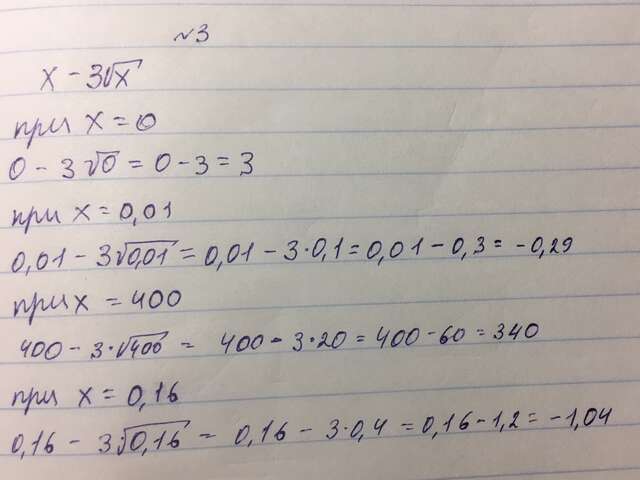 №3
x - 3√x
при x = 0
0 - 3√0 = 0 - 3 = 3
при x = 0,01
0,01 - 3√0,01 = 0,01 - 3·0,1 = 0,01 - 0,3 = -0,29
при x = 400
400 - 3·√400 = 400 - 3·20 = 400 - 60 = 340
при x = 0,16
0,16 - 3√0,16 = 0,16 - 3·0,4 = 0,16 - 1,2 = -1,04